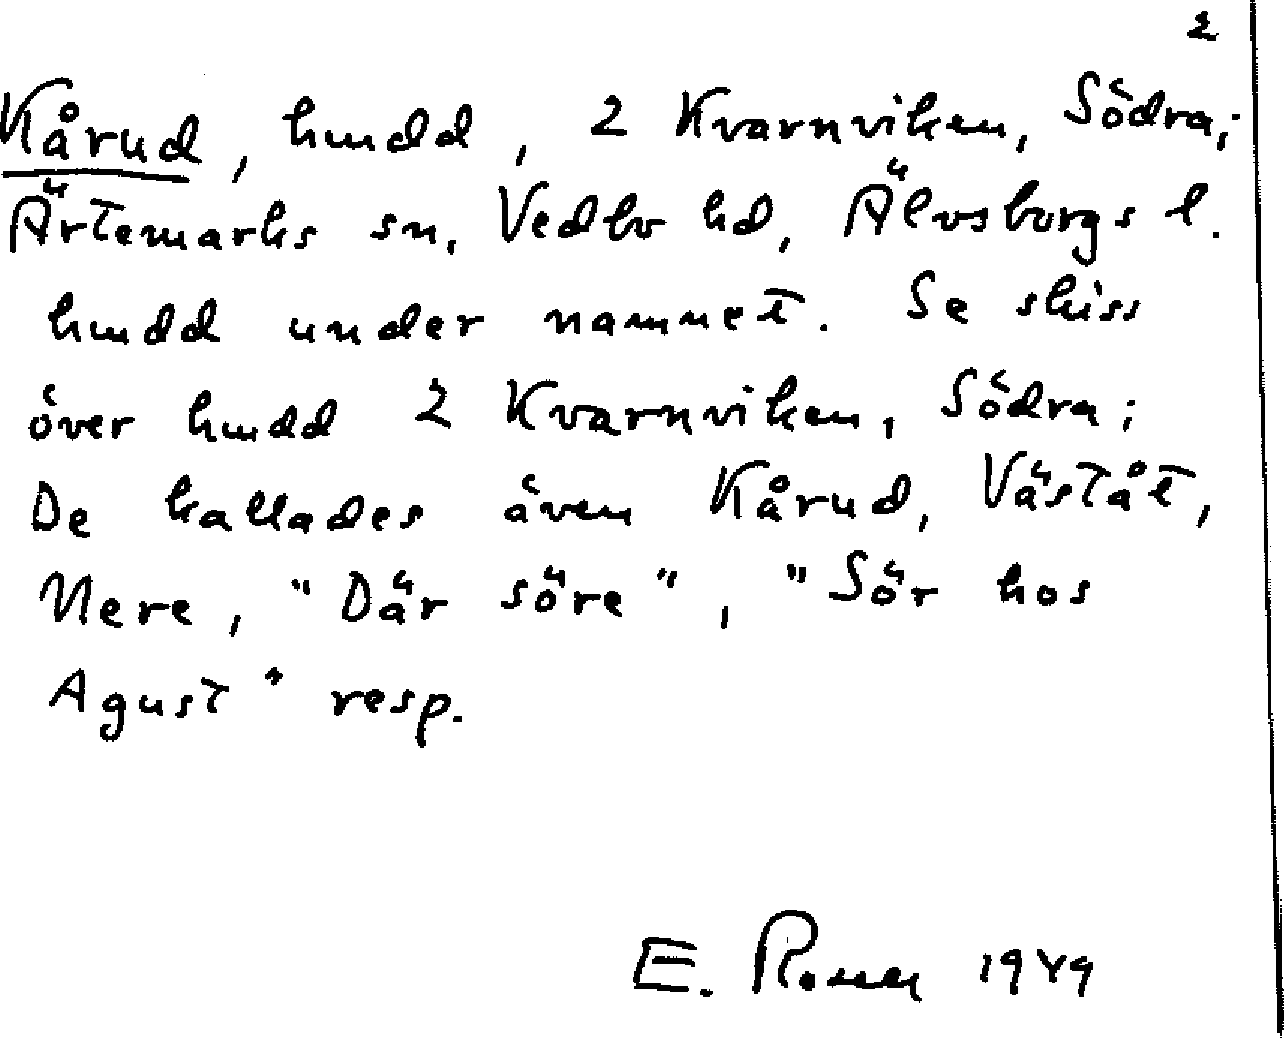 2
Kårud, hmdd, 2 Kvarnviken, Södra;
Ärtemarks sn, Vedbo hd, Älvsborgs l.
hmdd under namnet. Se skiss
över hmdd 2 Kvarnviken, Södra;
De kallades även Kårud, Väståt,
Nere, "Där söre", "Sör hos
Agust" resp.
E. 1949